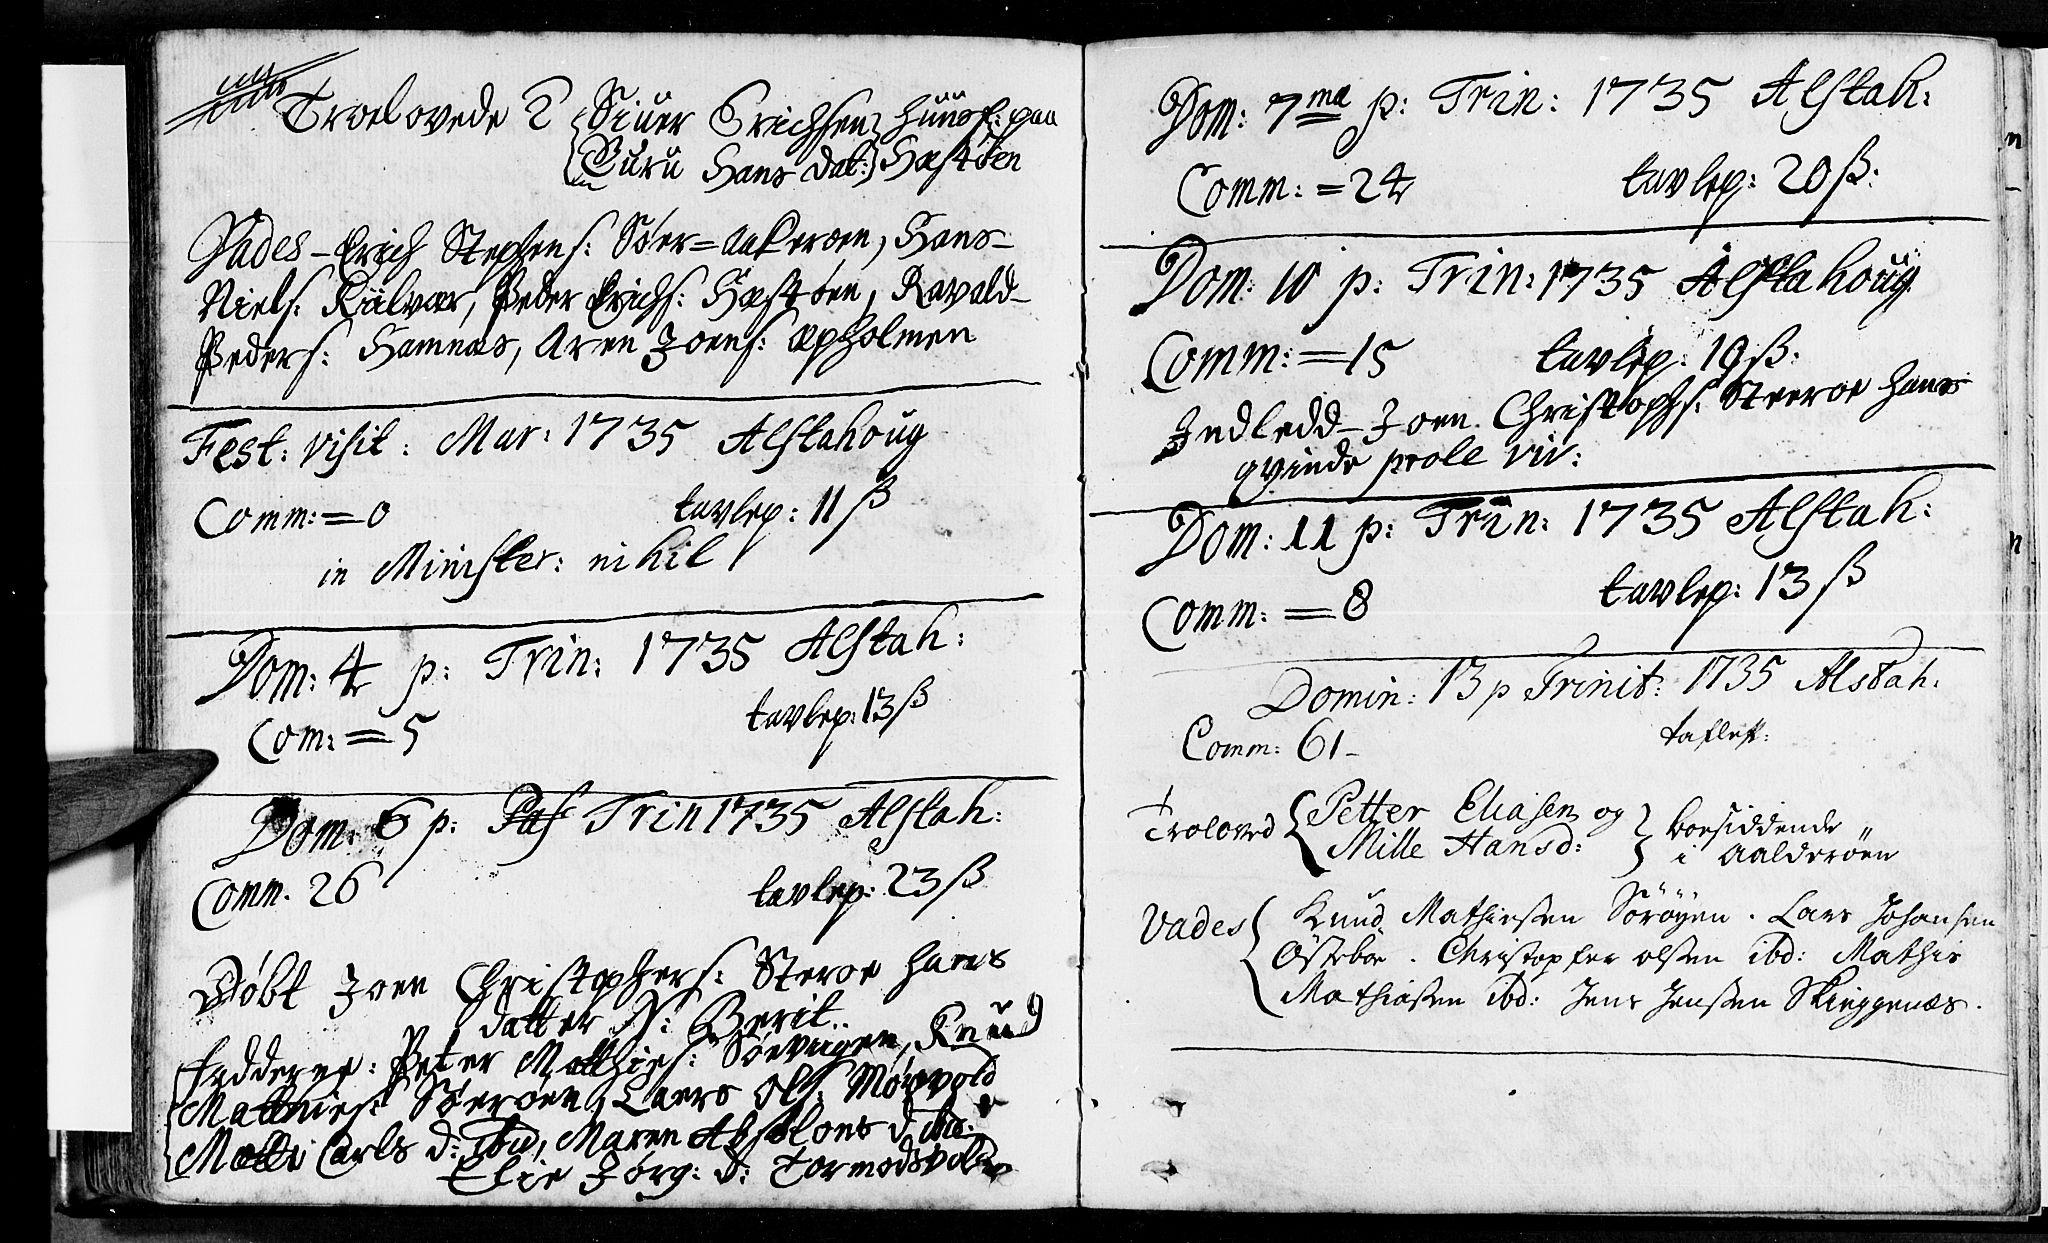 Troelovede 2 { Siuer Erichsen } huusf: paa
{ Guru Hans dat: } Hæstöen
Vades - Erich Stephens: Söer=aakeröen, Hans
Niels: Kiilvær, Peder Erichs: Hæstöen, Ravald
Peders: Hamnæs, Aren Joens: Æpholmen
Fest: visit: Mar: 1735 Alstahoug
Comm: = 0 tavlep: 11 ß
in Minister: nihil
Dom: 4 p: Trin: 1735 Alstah:
Com: = 5 tavlep: 13 ß
Dom: 6 p: Trin 1735 Alstah:
Comm. 26 tavlep: 23 ß
Döbt Joen Christophers: Steroe hans
datter N: Berit
fadderne: Peter Matthies: Söevigen, Knud
Matthies: Söeröen, Laers Ols: Möevold
Carls d: ibid, Maren Absolons d ibid:
Elie Jörg: d: Tormodsvold
Dom: 7ma p: Trin: 1735 Alstah:
Comm: = 24 tavlep: 20 ß:
Dom: 10 p: Trin: 1735 Alstahoug
Comm: = 15 tavlep: 19 ß:
Indledd - Joen Christophs: Steeroe hans
qvinde prole viv:
Dom: 11 p: Trin: 1735 Alstah:
Comm: = 8 tavlep: 13 ß
Domin: 13 p Trinit: 1735 Alstah:
Comm: 61 - taflep:
Troloved { Petter Eliasen og } boesiddende
{ Mille Hansd: } i Aalderöen
Vades { Knud Mathiesen Söröyen. Lars Johansen
Östeböe. Christopfer olsen ibd: Mathis
Mathiasen ibd: Jens Jensen Skieggenæs.